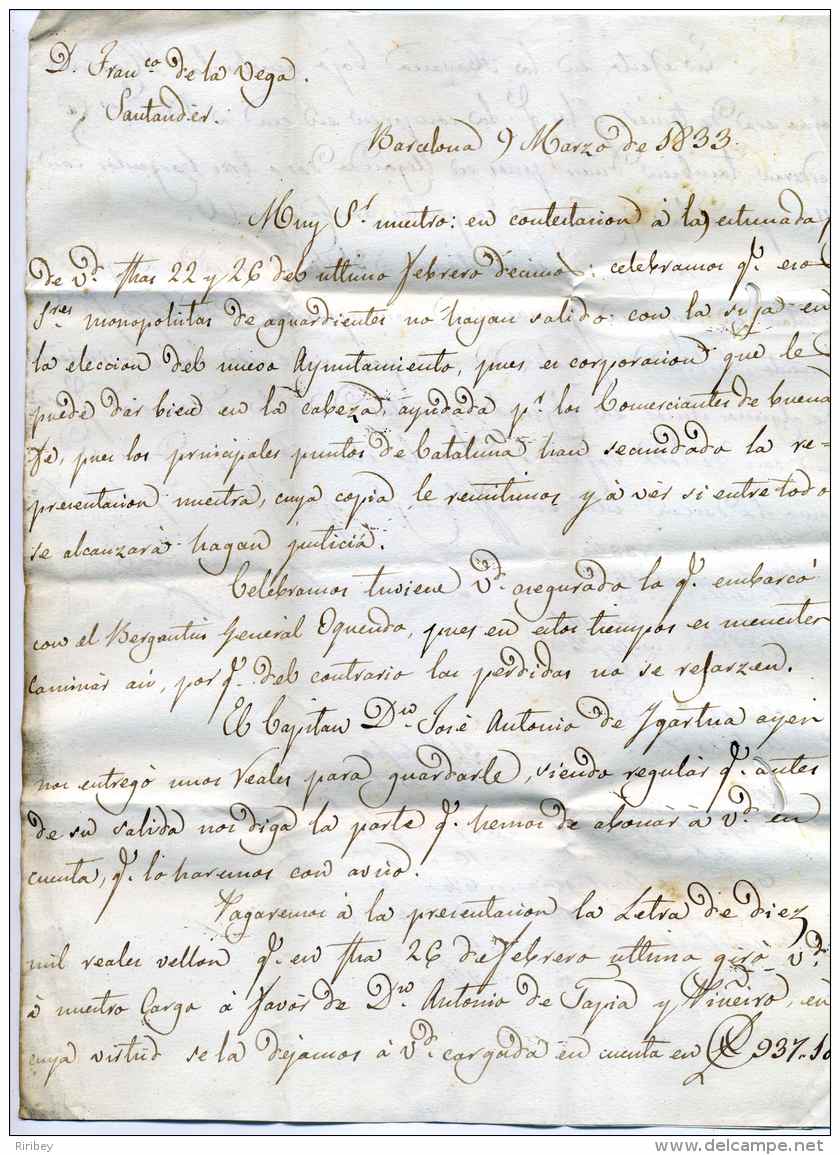 D. Fran.co de la Vega.
Santandér.
Barcelona 9 Marzo de 1833.
Muy S.r nuestro: en contestacion à las estimadas
de V.d fhas 22 y 26 del ultimo Febrero decimos: celebramos q.e esos
S.res monopolistas de aguardientes no hayan salido con la suya en
la eleccion del nuevo Ayuntamiento, pues es corporacion que les
puede dar bien en la cabeza, ayudada p.r los Comerciantes de buena
fe, pues los principales puntos de Cataluña han secundado la re=
presentacion nuestra, cuya copia le remitimos y à vèr si entre todos
se alcanzará hagan justicia.
Celebramos tuviese V.d asegurado lo q.e embarcó
con el Bergantin General Oquendo, pues en estos tiempos es menester
Caminàr asi, por q.e del contrario las perdidas no se resarzen.
El Capitan D.n José Antonio de Ygartua ayer
nos entregó unos reales para guardarle, siendo regulàr q.e antes
de su salida nos diga la parte q.e hemos de abonàr à V.d en
cuenta, q.e lo haremos con aviso.
Pagaremos à la presentacion la Letra de diez
mil reales vellon q.e en fha 26 de Febrero ultimo giró V.d
à nuestro Cargo à favòr de D.n Antonio de Tapia y Piñeiro, en
cuya virtud se la dejamos à V.d cargada en cuenta en 937.10
Riribey
www.delcampe.net